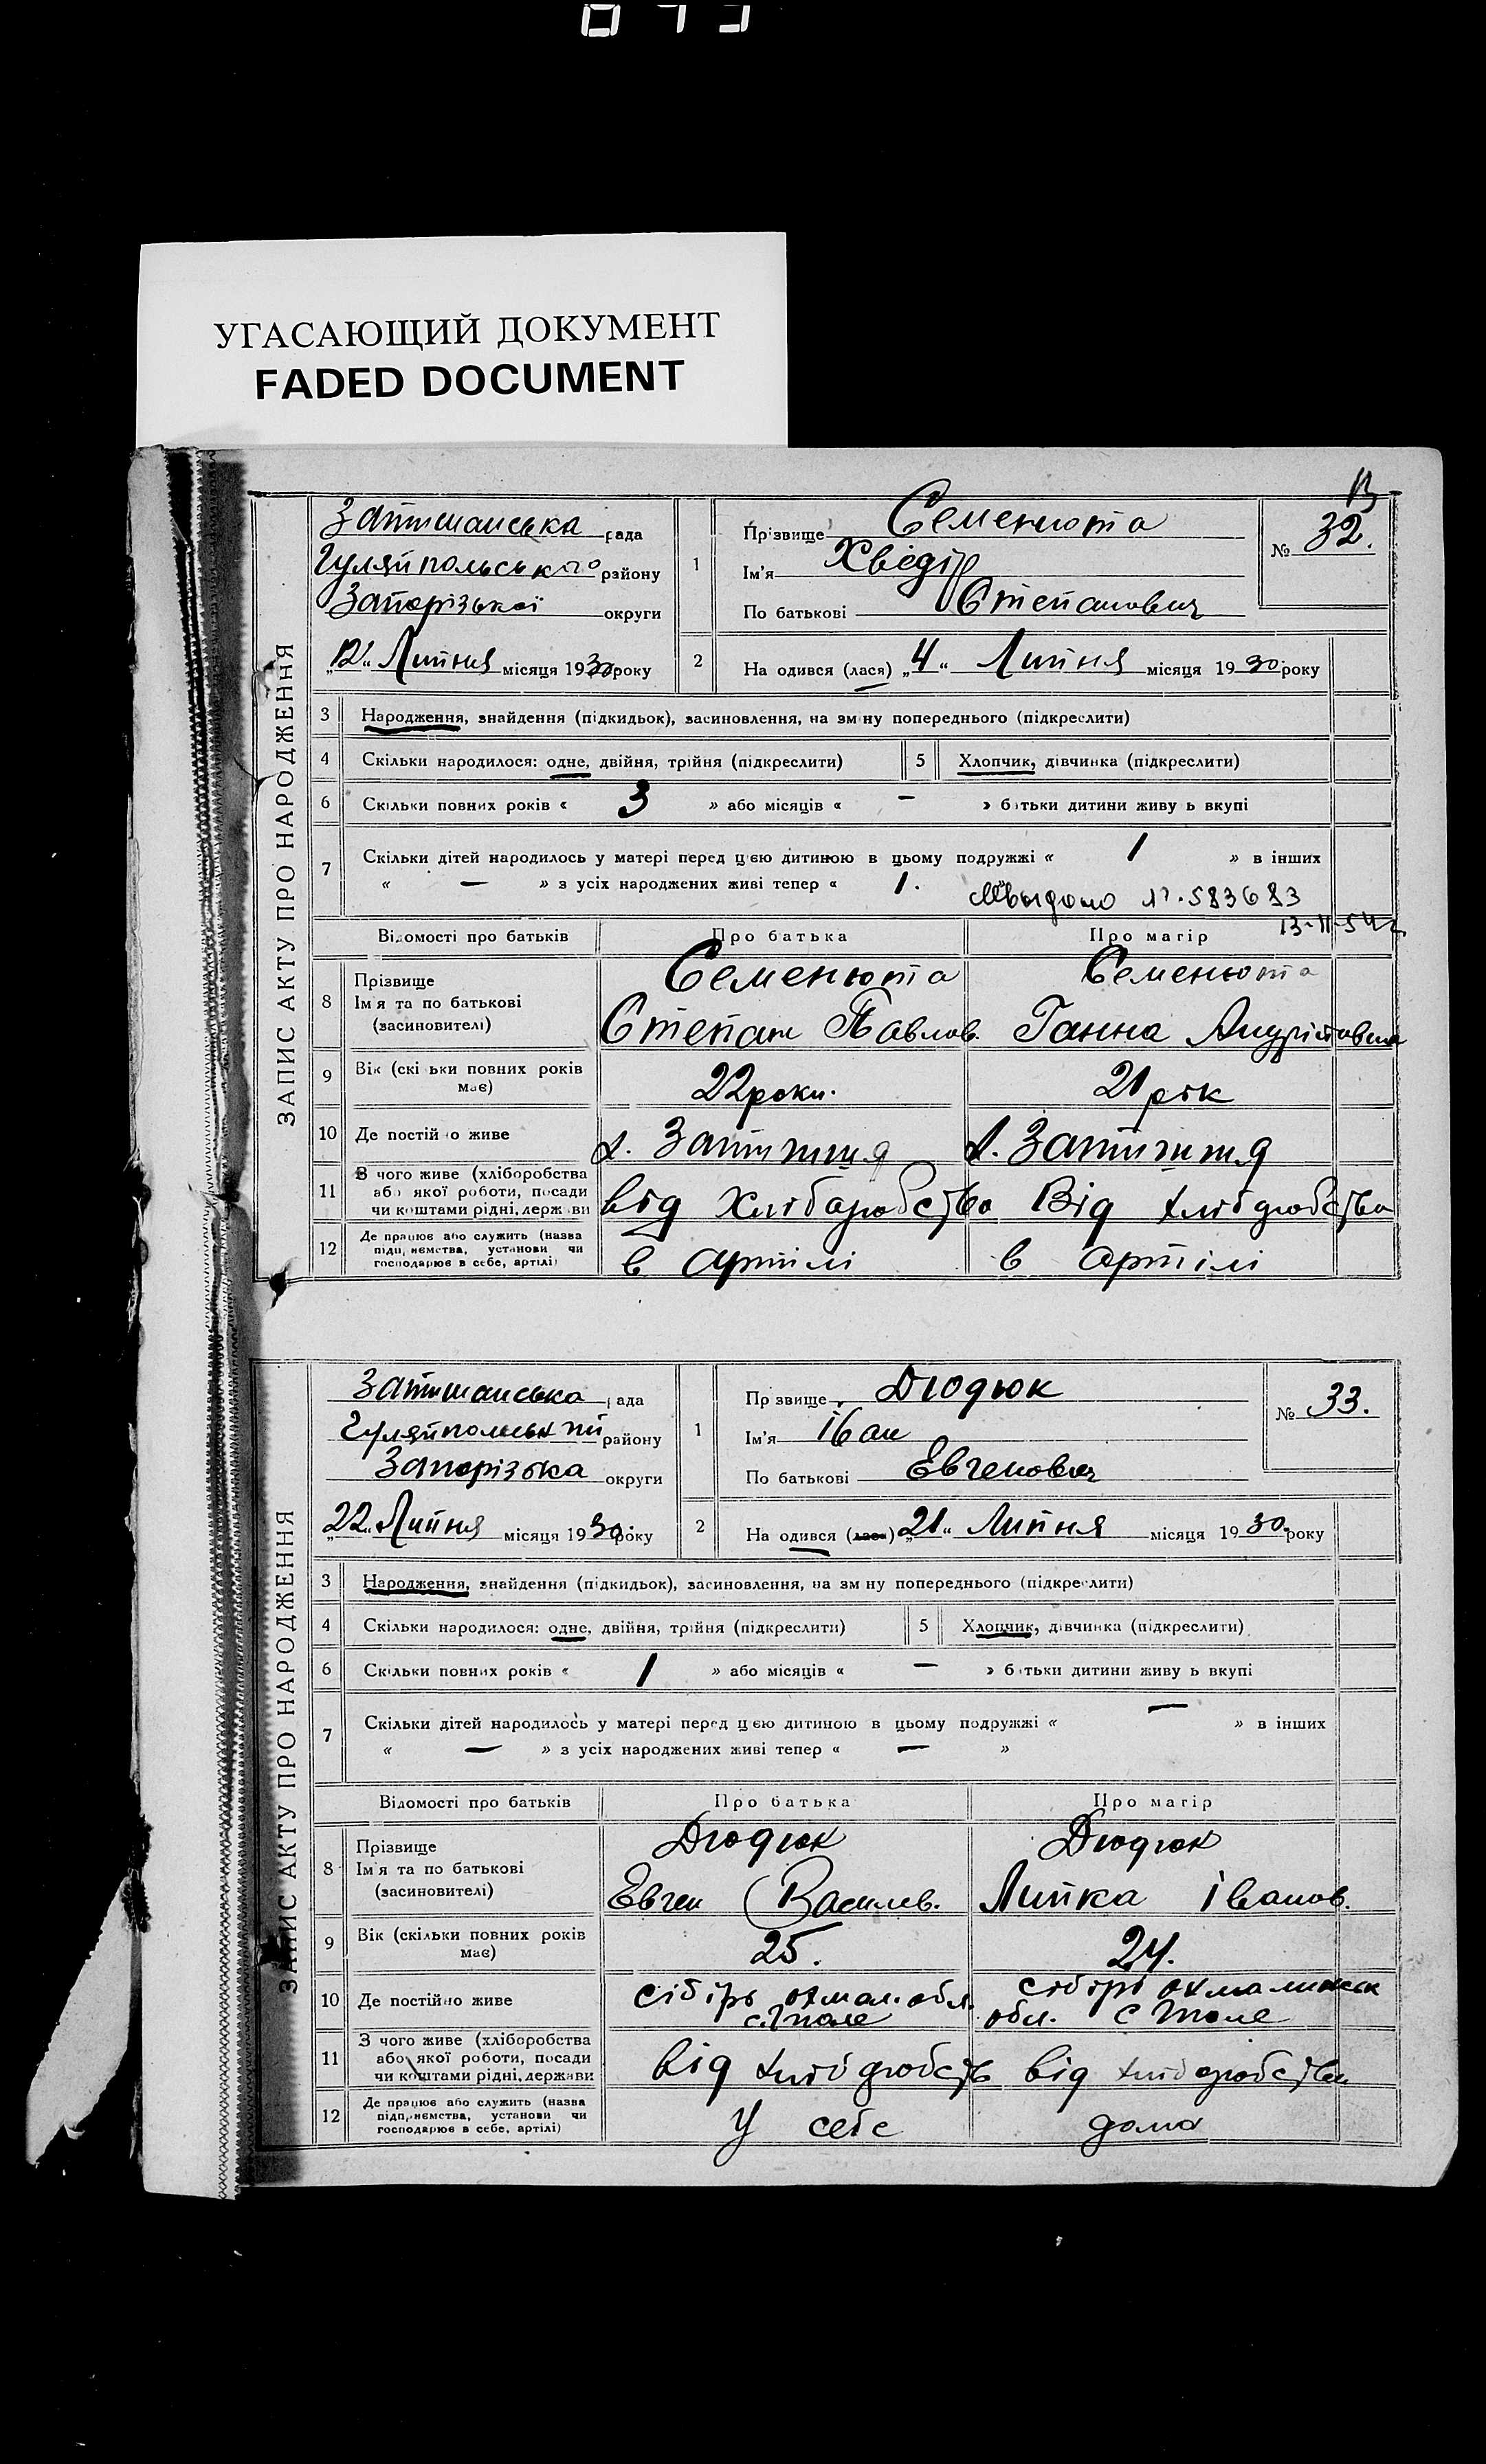 УГАСАЮЩИЙ ДОКУМЕНТ
FADED DOCUMENT
ЗАПИС АКТУ ПРО НАРОДЖЕННЯ
13
Затишанська рада
Гуляйпольського району
Запорізької округи
"12" Липня місяця 1930 року
1 Прізвище Семенюта
Ім'я Хведір
По батькові Степанович
№ 32.
2 На одився (лася) "4" Липня місяця 1930 року
3 Народження, знайдення (підкидьок), засиновлення, на зм ну попереднього (підкреслити)
4 Скільки народилося: одне, двійня, трійня (підкреслити) 5 Хлопчик, дівчинка (підкреслити)
6 Скільки повних років « 3 » або місяців « — » батьки дитини живу ь вкупі
7 Скільки дітей народилось у матері перед цією дитиною в цьому подружжі « 1 » в інших
« — » з усіх народжених живі тепер « 1. »
выдано 583683
13-11-54 г.
Відомості про батьків Про батька Про матір
8 Прізвище Ім'я та по батькові (засновителі)
Семенюта Семенюта
Степан Павлов. Ганна
9 Вік (скі ьки повних років має) 22 роки. 21 рік
10 Де постійно живе х. Затишшя х. Затишшя
11 З чого живе (хліборобства або якої роботи, посади чи коштами рідні, держави від хліборобства від хліборобства
12 Де працює або служить (назва підприємства, установи чи господарює в себе, артілі) в артілі в артілі
ЗАПИС АКТУ ПРО НАРОДЖЕННЯ
Затишанська рада
Гуляйпольський району
Запорізька округи
"22" Липня місяця 1930 року
1 Пр звище Дюдюк
Ім'я Іван
По батькові Евгенович
№ 33.
2 На одився (лася) "21" Липня місяця 1930 року
3 Народження, знайдення (підкидьок), засиновлення, на зм ну попереднього (підкреслити)
4 Скільки народилося: одне, двійня, трійня (підкреслити) 5 Хлопчик, дівчинка (підкреслити)
6 Скільки повних років « 1 » або місяців « — » батьки дитини живу ь вкупі
7 Скільки дітей народилось у матері перед цією дитиною в цьому подружжі « — » в інших
« — » з усіх народжених живі тепер « — »
Відомості про батьків Про батька Про матір
8 Прізвище Ім'я та по батькові (засиновителі)
Дюдюк Дюдюк
Евген Василев. Липка Іванов.
9 Вік (скільки повних років має) 25. 24.
10 Де постійно живе сібірь акмол. обл. сібірь
обл.
11 З чого живе (хліборобства або якої роботи, посади чи коштами рідні, держави від хліборобств від хліборобства
12 Де працює або служить (назва підприємства, установи чи господарює в себе, артілі) У себе дома